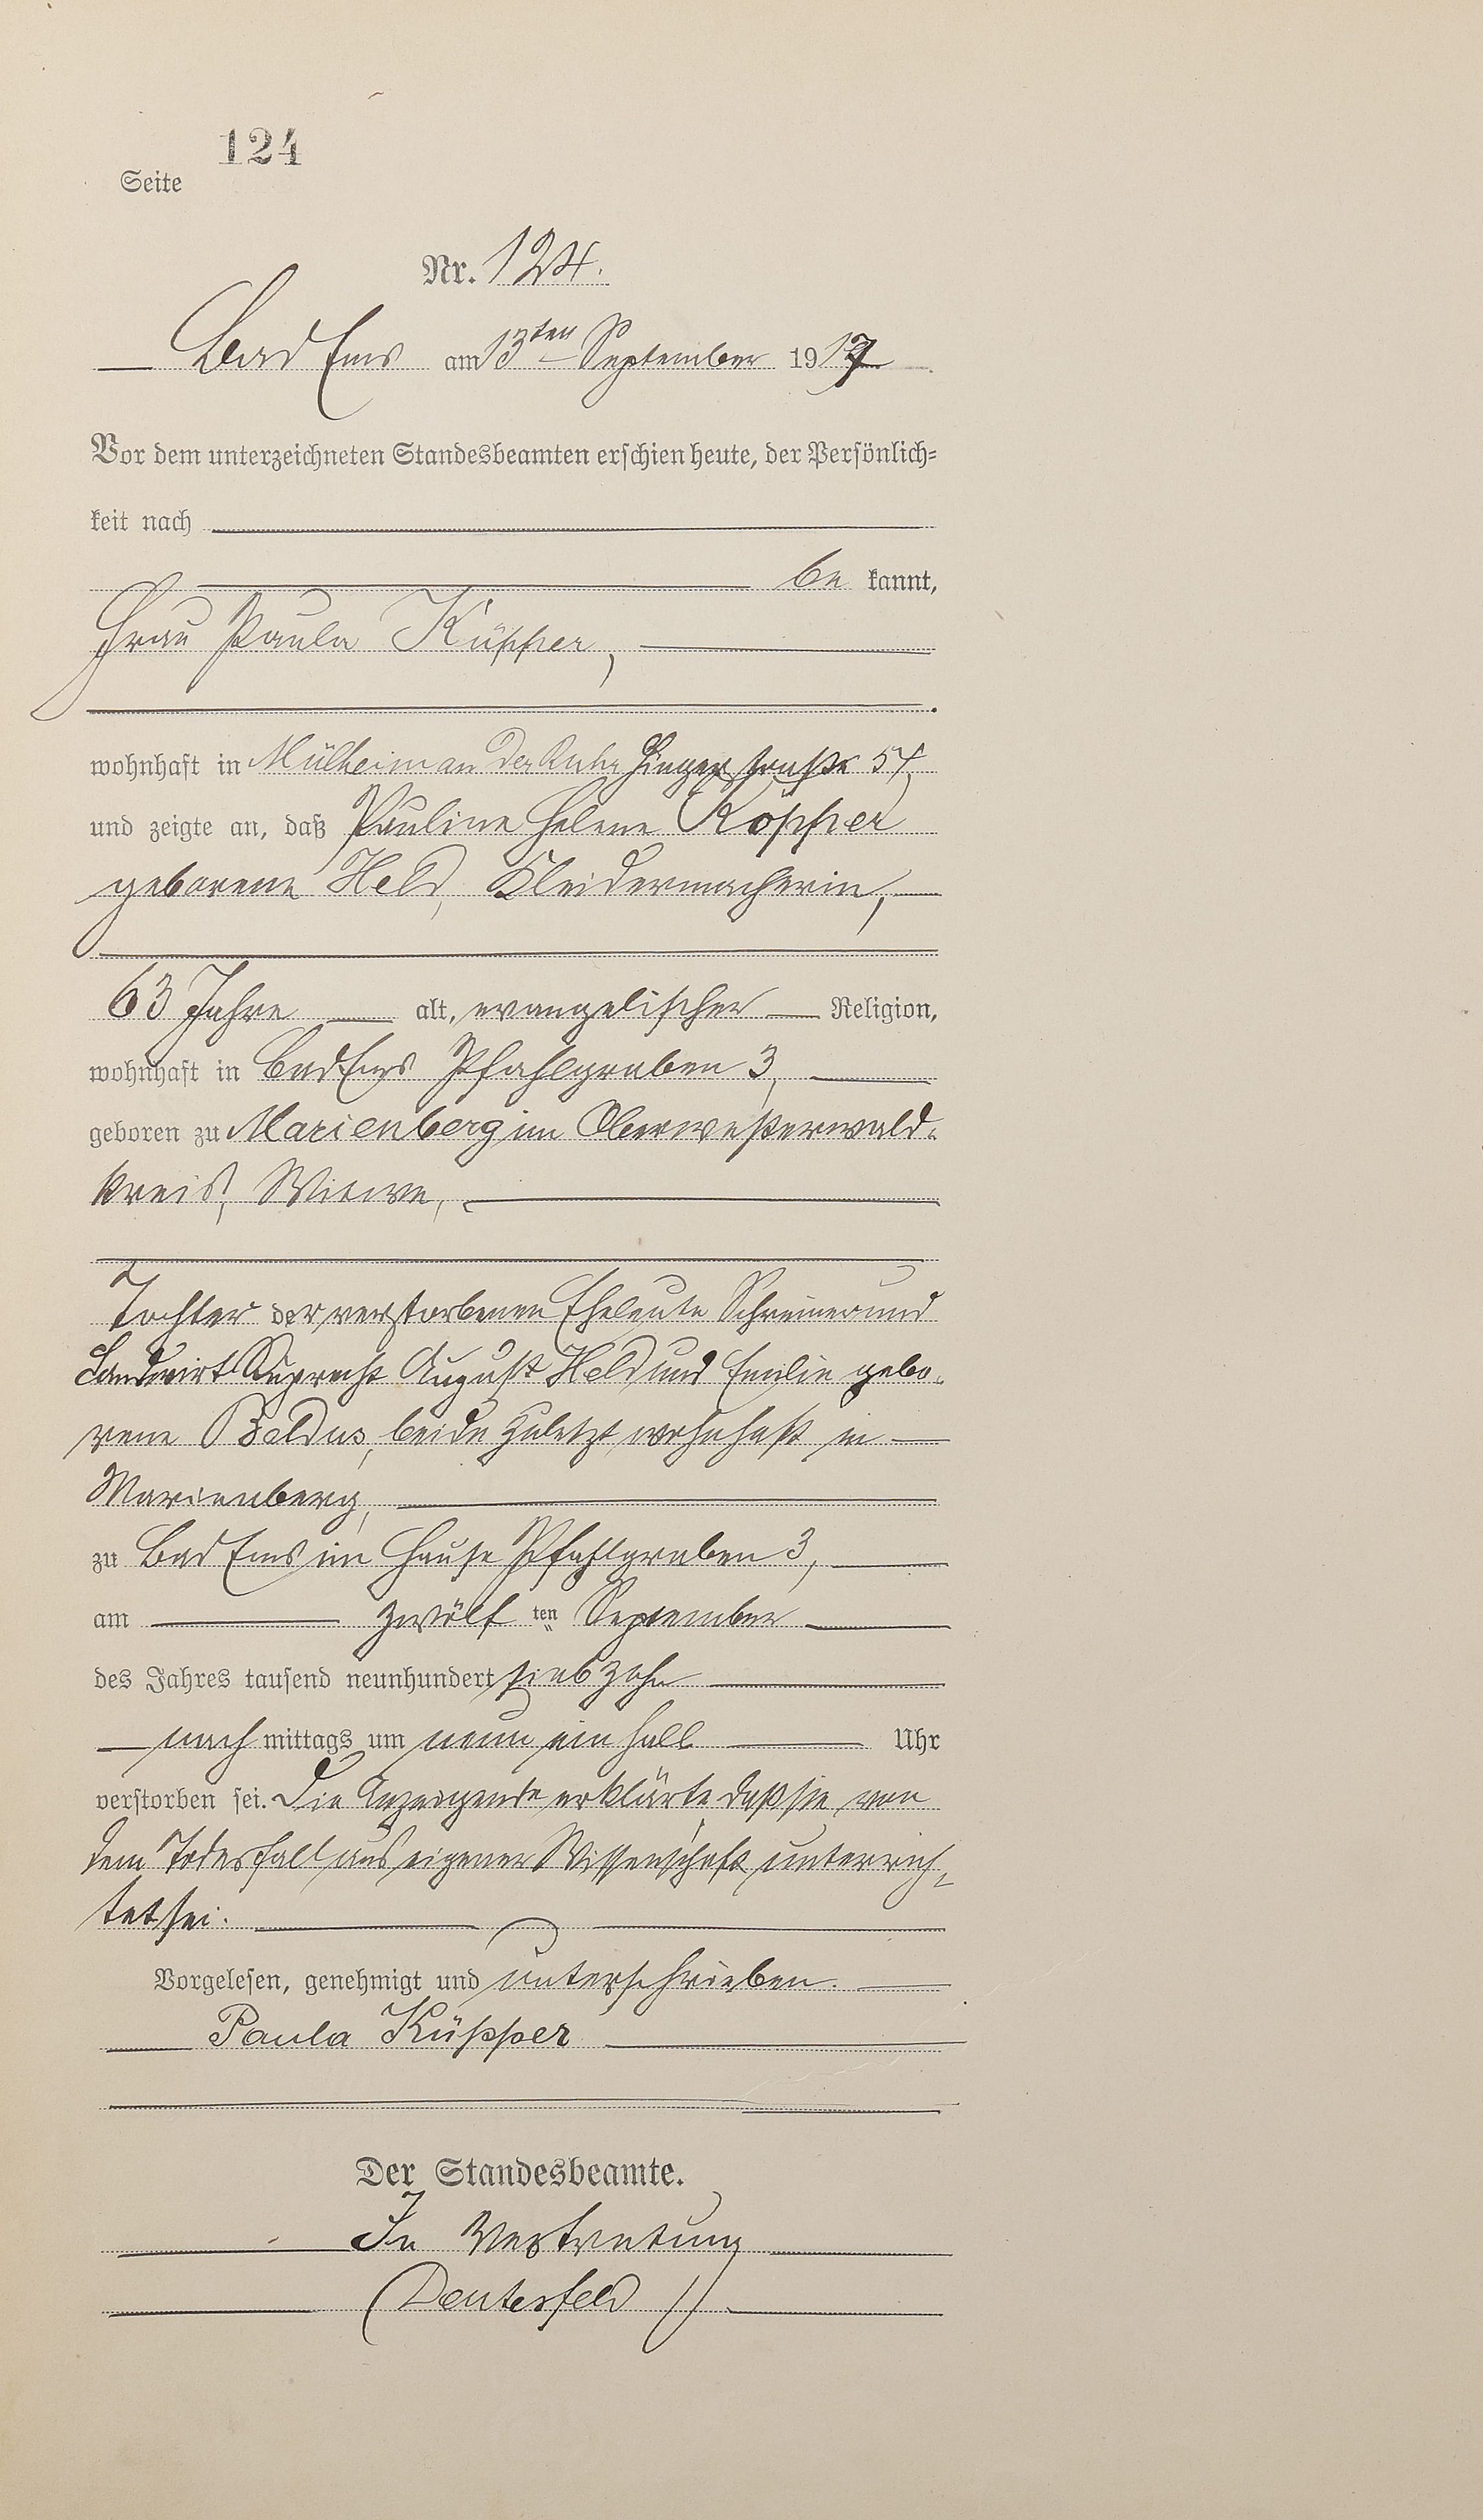 124
Seite
Nr. 124.
Bad Ems am 13ten September 1917
Vor dem unterzeichneten Standesbeamten erschien heute, der Persönlich=
keit nach
be kannt,
Frau Paula Küpper,
wohnhaft in Mülheim an der Ruhr straße 57,
und zeigte an, daß Pauline Helene Köpper
geborene Held, Kleidermacherin,
63 Jahre alt, evangelischer Religion,
wohnhaft in Bad Ems Pfahlgraben 3,
geboren zu Marienberg im Oberwesterwald-
kreis, Witwe,
Tochter der verstorbenen Eheleute Schreiner und
Landwirt Ruprecht August Held und Emilie gebo-
rene Beldus, beide zuletzt wohnhaft in
Marienberg,
zu Bad Ems im Hause Pfahlgraben 3,
am zwölf ten September
des Jahres tausend neunhundert siebzehn
nach mittags um neun ein halb Uhr
verstorben sei. Die Anzeigende erklärte daß sie von
dem Todesfall aus eigener Wissenschaft unterrich-
tet sei.
Vorgelesen, genehmigt und unterschrieben.
Paula Küpper
Der Standesbeamte.
In Vertretung